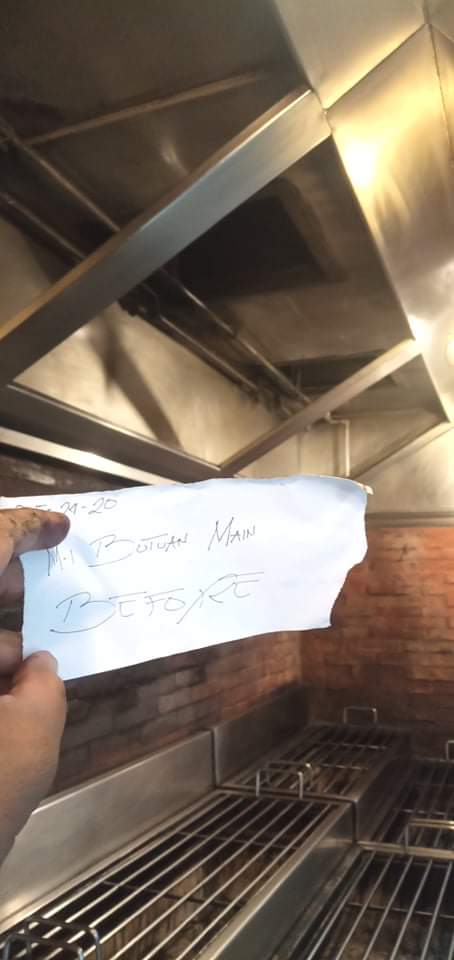 29-20
M.I BUTUAN MAIN
BEFORE